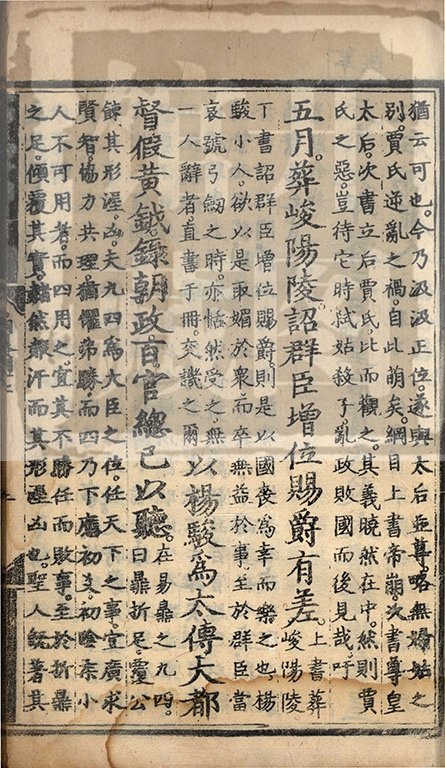 猶云可也。今乃汲汲正位。遂與太后並尊。略無婦姑之
別。賈氏逆亂之禍。自此萌矣。綱目上書帝崩。次書尊皇
太后。次書立后賈氏。比而觀之。其義曉然在中。然則賈
氏之惡。豈待它時弑姑殺子。亂政敗國而後見哉。吁
五月。葬峻陽陵。詔群臣增位賜爵有差。上書葬峻陽陵
下書詔群臣增位賜爵。則是以國喪為幸而樂之也。楊
駿小人。欲以是取媚於衆。而卒無益於事。至於群臣當
哀號弓劒之時。亦恬然受之。無
一人辭者。直書于冊。交譏之爾
以楊駿為太傅大都
督。假黃鉞。錄朝政。百官總己以聽。在易鼎之九四。
曰鼎折足。覆公
餗。其形渥。凶。夫九四為大臣之位。任天下之事。宜廣求
賢智。協力共理。猶懼弗勝。而四乃下應初爻。初陰柔小
人不可用者。而四用之。宜其不勝任而敗事。至於折鼎
之足。傾覆其實。然汗而其形渥凶也。聖人著其